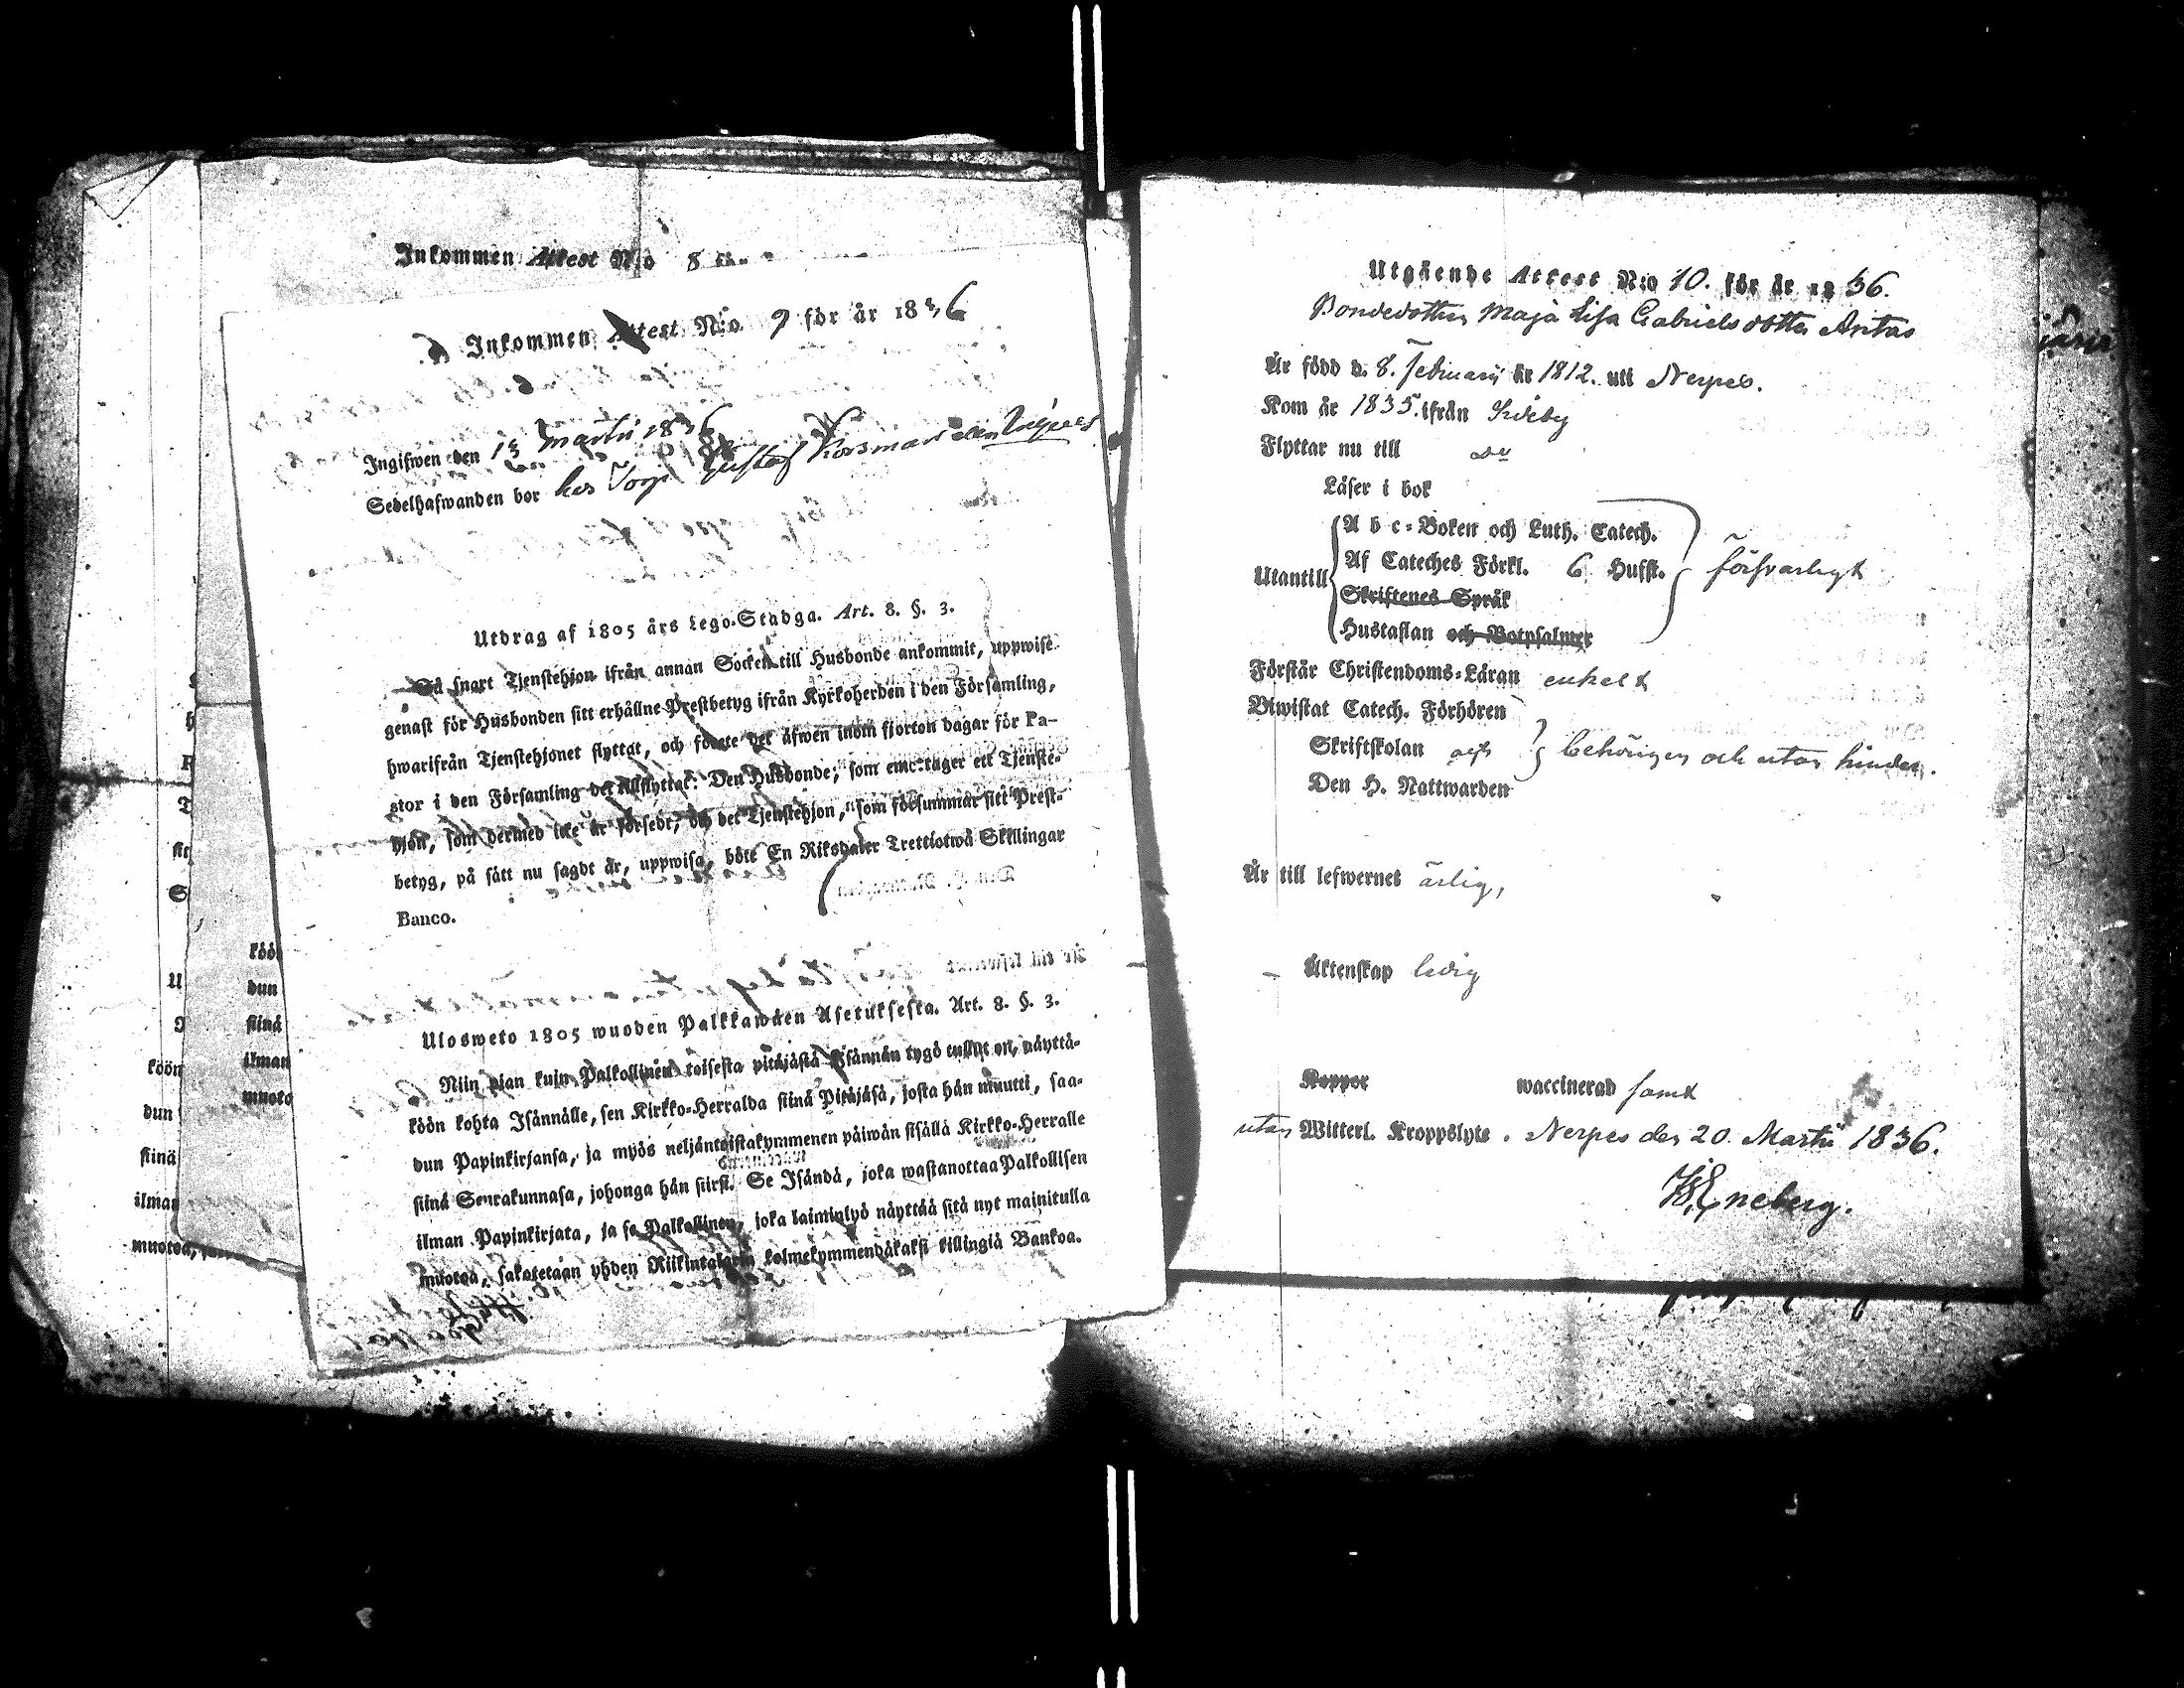 Inkommen Attest N:o 8 för
Inkommen Attest N:o 9 för år 1836
Ingifwen den 13 Martii 1836
Sedelhafwanden bor hos Torp Gustaf Korsman
Utdrag af 1805 års Lego-Stadga. Art. 8. §. 3.
Så snart Tjenstehjon ifrån annan Socken till Husbonde ankommit, uppwise
genast för Husbonden sitt erhållne Prestbetyg ifrån Kyrkoherden i den Församling,
hwarifrån Tjenstehjonet flyttat, och förete det äfwen inom fjorton dagar för Pa-
stor i den Församling det tillflyttat. Den Husbonde, som emottager ett Tjenste-
hjon, som dermed icke är försedt, och det Tjenstehjon, som försummar sitt Prest-
betyg, på sätt nu sagdt är, uppwisa, böte En Riksdaler Trettiotwå Skillingar
Banco.
Ulosweto 1805 wuoden Palkkawäen Asetuksesta. Art. 8. §. 3.
Niin pian kuin Palkollinen toisesta pitäjästä Isännän tygö tullut on, näyttä-
köön kohta Isännälle, sen Kirkko-Herralda siinä Pitäjäsä, josta hän muutti, saa-
dun Papinkirjansa, ja myös neljäntoistakymmenen päiwän sisällä Kirkko-Herralle
siinä Seurakunnasa, johonga hän siirsi. Se Isändä, joka wastanottaa Palkollisen
ilman Papinkirjata, ja se Palkollinen, joka laiminlyö näyttää sitä nyt mainitulla
muotoa, sakotetaan yhden Riikintalarin kolmekymmendäkaksi killingiä Bankoa.
köö
dun
siinä
ilman
muoto
köön
dun
siinä
ilman
muotoa,
Utgående Attest N:o 10. för år 1836.
Bondedottren Maja Lisa Gabrielsdotter Antas
Är född d. 8. Februarii år 1812. uti Nerpes.
Kom år 1835. ifrån Sideby
Flyttar nu till do
Läser i bok
Utantill
A b c-Boken och Luth. Catech.
Af Cateches Förkl. 6 Hufst.
Skriftenes Språk
Hustaflan och Botpsalmer
försvarligt
Förstår Christendoms-Läran enkelt
Biwistat Catech. Förhören
Skriftskolan och
Den H. Nattwarden
behörigen och utan hinder.
Är till lefwernet ärlig,
Äktenskap ledig
Koppor waccinerad samt
utan Witterl. Kroppslyte. Nerpes den 20. Martii 1836.
Eneberg.